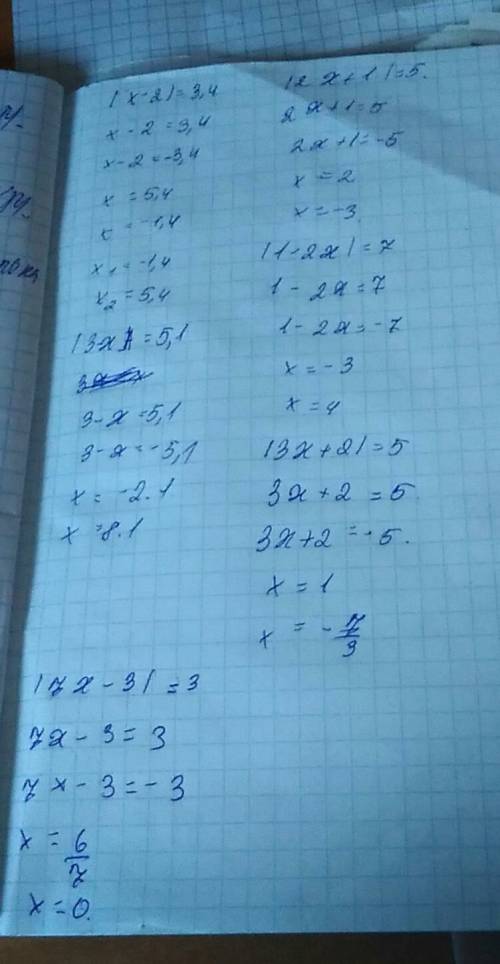 |x-2|=3,4
x-2=3,4
x-2=-3,4
x=5,4
x=-1,4
x₁=-1,4
x₂=5,4
|3x|=5,1
3-x=5,1
3-x=-5,1
x=-2.1
x=8.1
|2x+1|=5.
2x+1=5
2x+1=-5
x=2
x=-3
|1-2x|=7
1-2x=7
1-2x=-7
x=-3
x=4
|3x+2|=5
3x+2=5.
3x+2=-5.
x=1
x=-7/3
|7x-3|=3
7x-3=3
7x-3=-3
x=6/7
x=0.